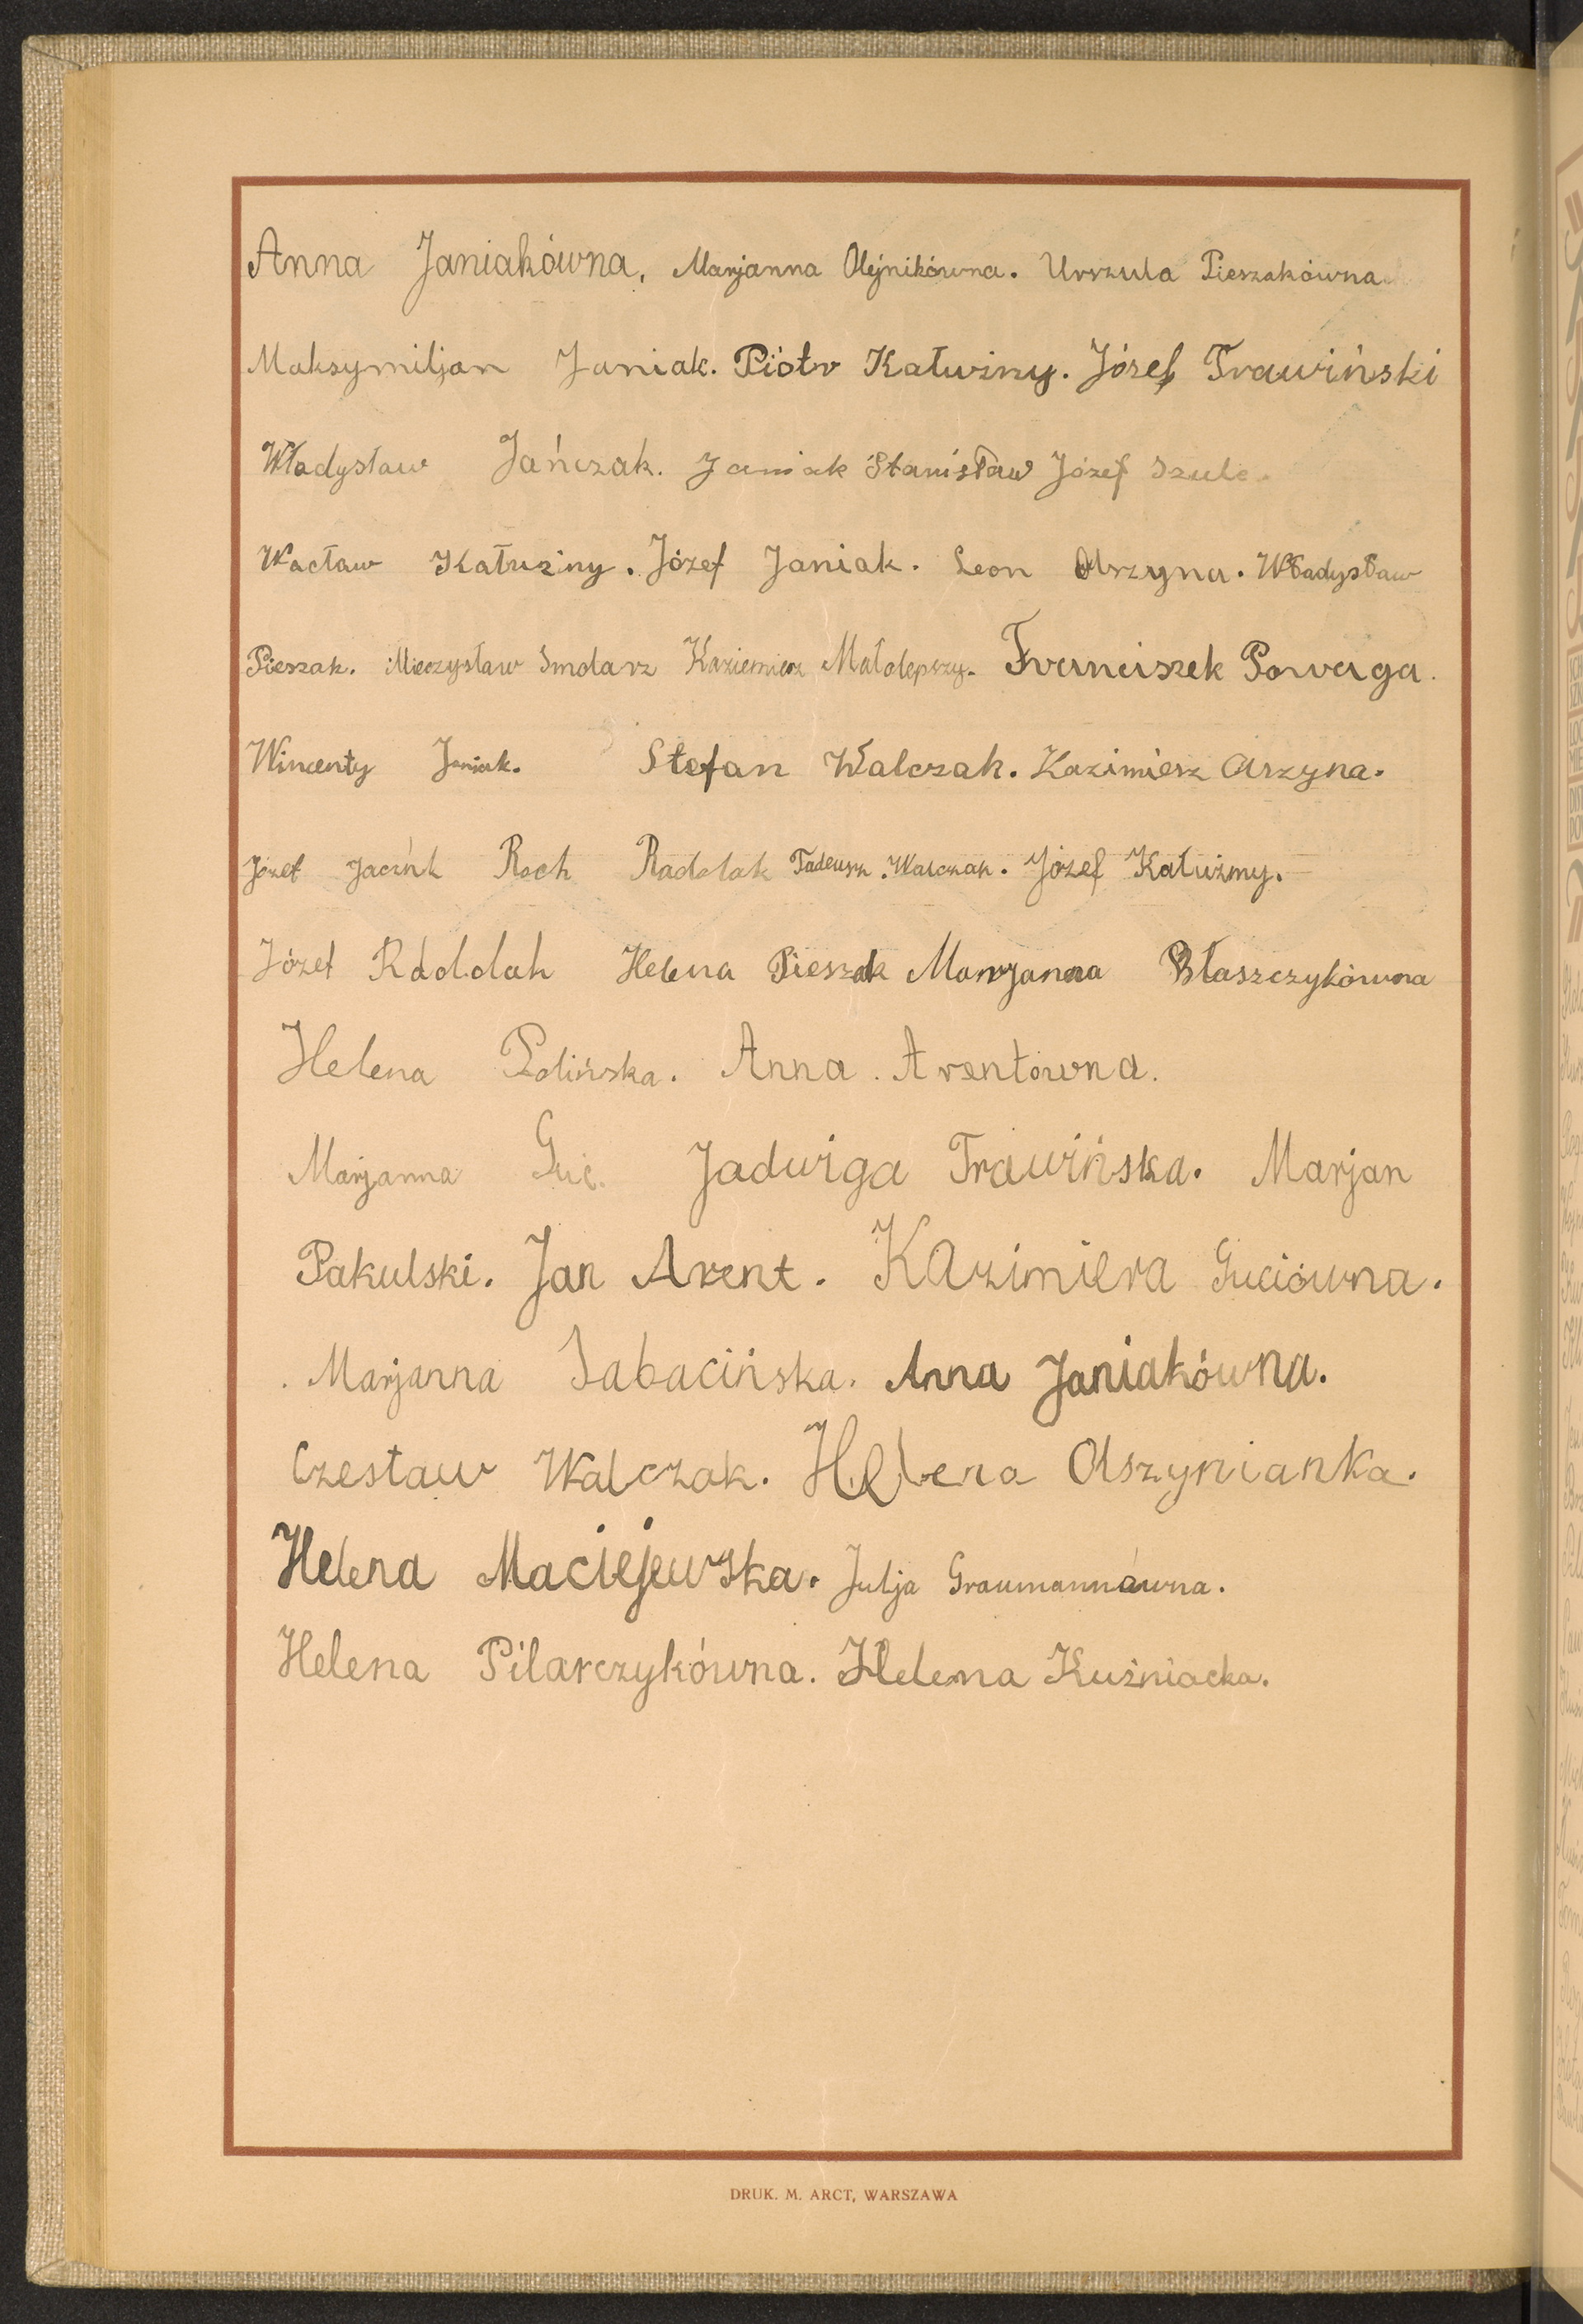 Anna Janiakówna, Marjanna Olejnikówna. Urszula Pieszakówna
Maksymiljan Janiak. Piotr Kałużny. Józef Trawiński
Władysław Jańczak. Janiak Stanisław Józef Szulc.
Wacław Kałuziny. Józef Janiak. Leon Olszyna. Władysław
Pieszak. Mieczysław Smolarz Kaziemiesz Małolepszy. Franciszek Powaga.
Wincenty Janiak. Stefan Walczak. Kazimiesz Olszyna.
Józef Roch Radolak Tadeusz. Walczak. Józef Kałużmy.
Józef Radolak Helena Pieszak Marjanna Błaszczykówna
Helena Polińska. Anna. Arentówna.
Marjanna Guć. Jadwiga Trawińska. Marjan
Pakulski. Jan Arent. Kazimiera Guciówna.
Marjanna Sabacińska. Anna Janiakówna.
Czesław Walczak. Helena Olszynianka.
Helena Maciejewska. Julja Graumannówna.
Helena Pilarczykówna. Helena Kuźniacka.
DRUK. M. ARCT, WARSZAWA